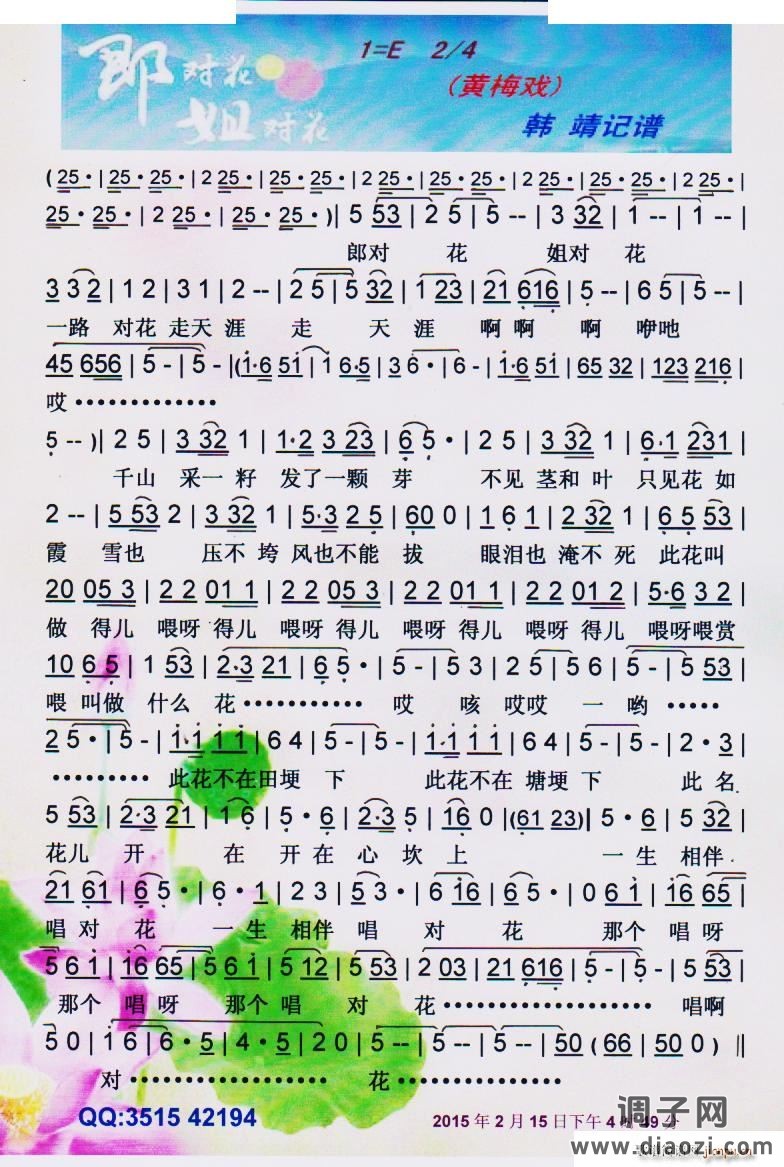 郎对花
姐对花
1=E 2/4
(黄梅戏)
韩 靖记谱
(25·|25·|25·|225·|25·|25·|225·|25·|25·|225·|25·|225·|
25·25·|225·|25·25·)|5 53|2 5|5--|3 32|1--|1--|
郎对 花 姐对 花
3 3 2|1 2|3 1|2--|2 5|5 32|1 23|21 616|5--|6 5|5--|
一路 对花 走天 涯 走 天 涯 啊 啊 啊 咿吔
45 656|5-|5-|(i·6 5i|i 6·5|3 6·|6-|i·6 5i|65 32|123 216|
哎·············
5--)|2 5|3 32 1|1·2 3 23|6 5·|2 5|3 32 1|6·1 231|
千山 采一 籽 发了一颗 芽 不见 茎和 叶 只见花 如
2--|5 53 2|3 32 1|5·3 2 5|60 0|1 6 1|2 32 1|6 5 53|
霞 雪也 压不 垮 风也不能 拔 眼泪也 淹不 死 此花叫
20 05 3|2 2 01 1|2 2 05 3|2 2 01 1|2 2 01 2|5·6 3 2|
做 得儿 喂呀 得儿 喂呀 得儿 喂呀 得儿 喂呀 得儿 喂呀喂赏
10 6 5|1 53|2·3 21|6 5·|5-|5-|2 5|5 6|5-|5 53|
喂 叫做 什么 花··········· 哎 咳 哎哎 一 哟·····
2 5·|5-|i·i i i|6 4|5-|5-|i·i i i|6 4|5-|5-|2·3|
········· 此花不在田埂 下 此花不在 塘埂 下 此名
5 53|2·3 21|1 6|5·6|2·3|5-|16 0|(61 23)|5·6|5 32|
花儿 开 在 开在 心 坎 上 一生 相伴
21 61|6 5·|6·1|2 3|5 3·|6 i6|6 5·|0 6 i|i6 65|
唱对 花 一生 相伴 唱 对 花 那个 唱呀
5 6 i|i6 65|5 6 i|5 12|5 53|2 03|21 616|5-|5-|5 53|
那个 唱呀 那个 唱 对 花·················· 唱啊
5 0|16|6·5|4·5|2 0|5--|5--|5--|50(|66|50 0)‖
对·················· 花·················
QQ:3515 42194
2015 年 2 月 15 日下午 4 时 49 分
调子网
www.diaozi.com